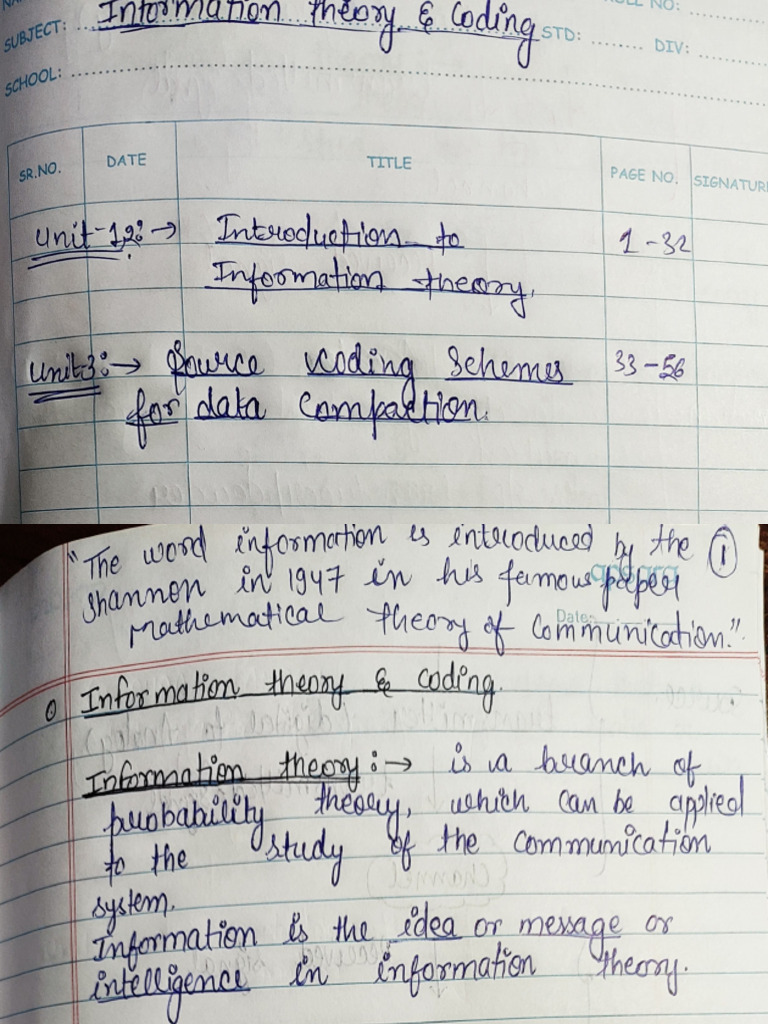 SUBJECT: Information theory & Coding STD: ........ DIV: ........
SCHOOL:
SR.NO. DATE TITLE PAGE NO. SIGNATURE
Unit-1,2:→ Introduction to 1-32
Information theory.
Unit-3:→ Source coding Schemes 33-56
for data Compaction.
"The word information is introduced by the ①
Shannon in 1947 in his famous paper
Date:
Mathematical theory of Communication."
Information theory & coding.
Information theory:→ is a branch of
probability theory, which can be applied
to the study of the communication
system.
Information is the idea or message or
intelligence in information theory.